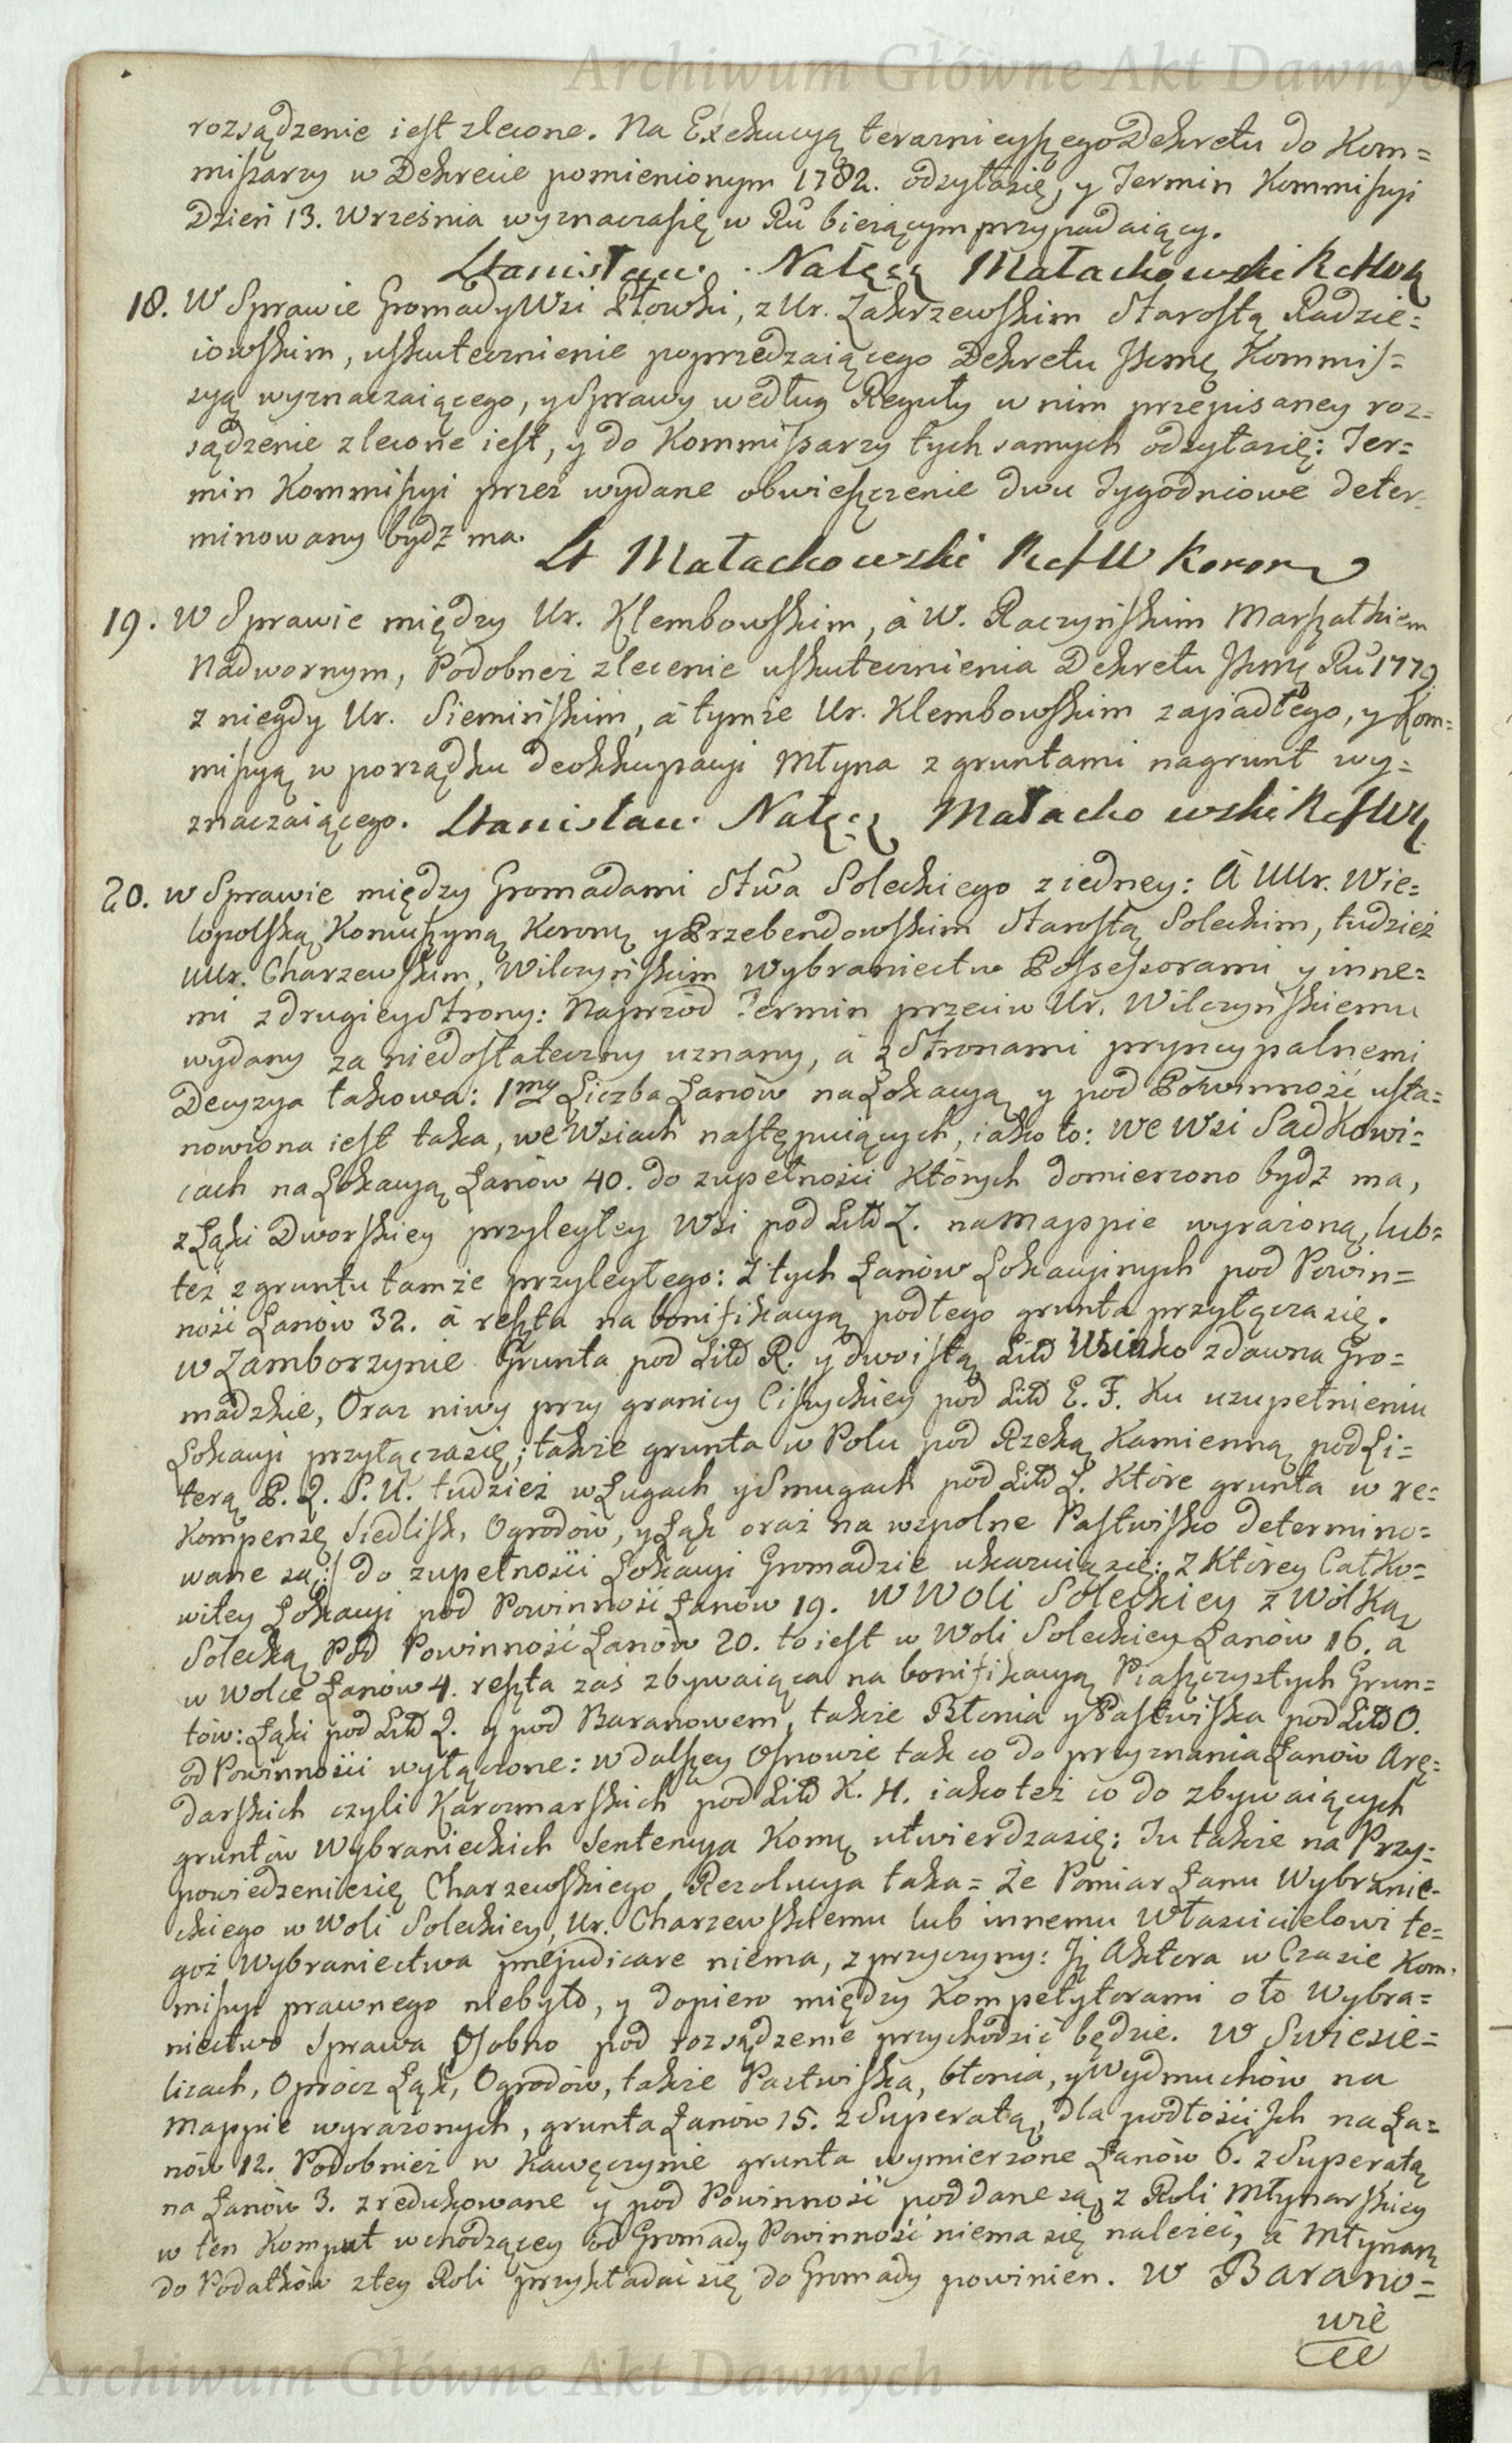 Archiwum Główne Akt Dawnych
rozsądzenie iest zlecone. Na Exekucyą teraznieyszego Dekretu do Kom=
missarzy w Dekrecie pomienionym 1782. odzyłasię, y Termin Kommissyi
Dzień 13. Września wyznaczasię w Ru bieżącym przypadaiący.
Stanisław Nałęcz Małachowski RefWK
18. W Sprawie Gromady Wsi Słowki, z Ur. Zakrzewskim Starostą Radzie=
iowskim, uskutecznienie poprzedzaiącego Dekretu Jkmę Kommis=
syą wyznaczaiącego, y Sprawy według Reguły w nim przepisaney roz=
sądzenie zlecone iest, y do Kommissarzy tych samych odzyłasię: Ter=
min Kommissyi przez wydane obwieszczenie dwu Tygodniowe deter=
minowany bydź ma.
St Małachowski RefW Koron
19. W Sprawie między Ur. Klembowskim, á W. Raczyńskim Marszałkiem
Nadwornym, Podobneż zlecenie uskutecznienia Dekretu Jkmę Ru 1779
z niegdy Ur. Siemińskim, á tymże Ur. Klembowskim zapadłego, y Kom=
missyą w porządku deokkupacyi Młyna z gruntami nagrunt wy=
znaczaiącego. Stanisław Nałęcz Małachowski RefWK
20. w Sprawie między Gromadami Stwa Soleckiego z iedney: Á UUr. Wie=
lopolską Koniuszyną Koronę y Przebendowskim Starostą Soleckim, tudzież
UUr. Charzewskim, Wilczyńskim Wybraniectw Possessorami y inne=
mi z drugiey Strony: Naprzód Termin przeciw Ur. Wilczyńskiemu
wydany za niedostateczny uznany, á z Stronami pryncypalnemi
Decyzya takowa: 1my Liczba Łanów na Lokacyą y pod Powinność usta=
nowiona iest taka, we Wsiach następuiących, iako to: We Wsi Sadkowi=
cach na Lokacyą Łanów 40. do zupełności Których domierzono bydź ma,
z Łąki Dworskiey przyległey Wsi pod Litt Z. na Mappie wyrażoną, lub=
też z gruntu tamże przyległego: Z tych Łanów Lokacyinych pod Powin=
ność Łanów 32. á reszta na bonifikacyą podłego grunta przyłączasię.
w Zamborzynie Grunta pod Litt R. y dwoistą Litt Wszisko zdawna Gro=
madzkie, Oraz niwy przy granicy Ciszyckiey pod Litt E. F. Ku uzupełnieniu
Lokacyi przyłączasię; także grunta w Polu pod Rzeką Kamienną pod Li=
terą P. Q. S. U. tudzież w Ługach y Smugach pod Litt Z. Które grunta w re=
kompensę Siedlisk, Ogrodów, y Łąk oraz na wspolne Pastwisko determino=
wane są:/ do zupełności Lokacyi Gromadzie ukazuią się: z Którey Całko=
witey Lokacyi pod Powinność Łanów 19. W Woli Soleckiey z Wólką
Solecką Pod Powinność Łanów 20. to iest w Woli Soleckiey Łanów 16. a
w Wolce Łanów 4. reszta zaś zbywaiąca na bonifikacyą Piaszczystych Grun=
tów: Łąki pod Litt Q. y pod Baranowem, także Błonia y Pastwiska pod Litt O.
od Powinności wyłączone: w dalszey Osnowie tak co do przyznania Łanów Arę=
darskich czyli Karczmarskich pod Litt K. H. iako też co do zbywaiących
gruntów Wybranieckich Sentencya Komę utwierdzasię: Tu także na Przy=
powiedzeniesię Charzewskiego Rezolucya taka= Że Pomiar Łanu Wybranie=
ckiego w Woli Soleckiey, Ur. Charzewskiemu lub innemu Właścicielowi te=
goż Wybraniectwa prejudicare niema, z przyczyny: Jż Aktora w Czasie Kom=
missyi prawnego niebyło, y dopiero między Kompetytorami o to Wybra=
niectwo Sprawa Osobno pod rozsądzenie przychodzić będzie. W Swiesie=
licach, Oprócz Łąk, Ogrodów, także Pastwiska, błonia, y Wydmuchów na
Mappie wyrażonych, grunta Łanów 15. z Superatą, dla podłości Jch na Ła=
nów 12. Podobnież w Kawęczynie grunta wymierzone Łanów 6. z Superatą
na Łanów 3. zredukowane y pod Powinność poddane są, z Roli Młynarskiey
w ten Komput wchodzącey od Gromady Powinność niema się należeć, á Młynarz
do Podatków z tey Roli przykładać się do Gromady powinien. W Barano=
wie
Archiwum Główne Akt Dawnych